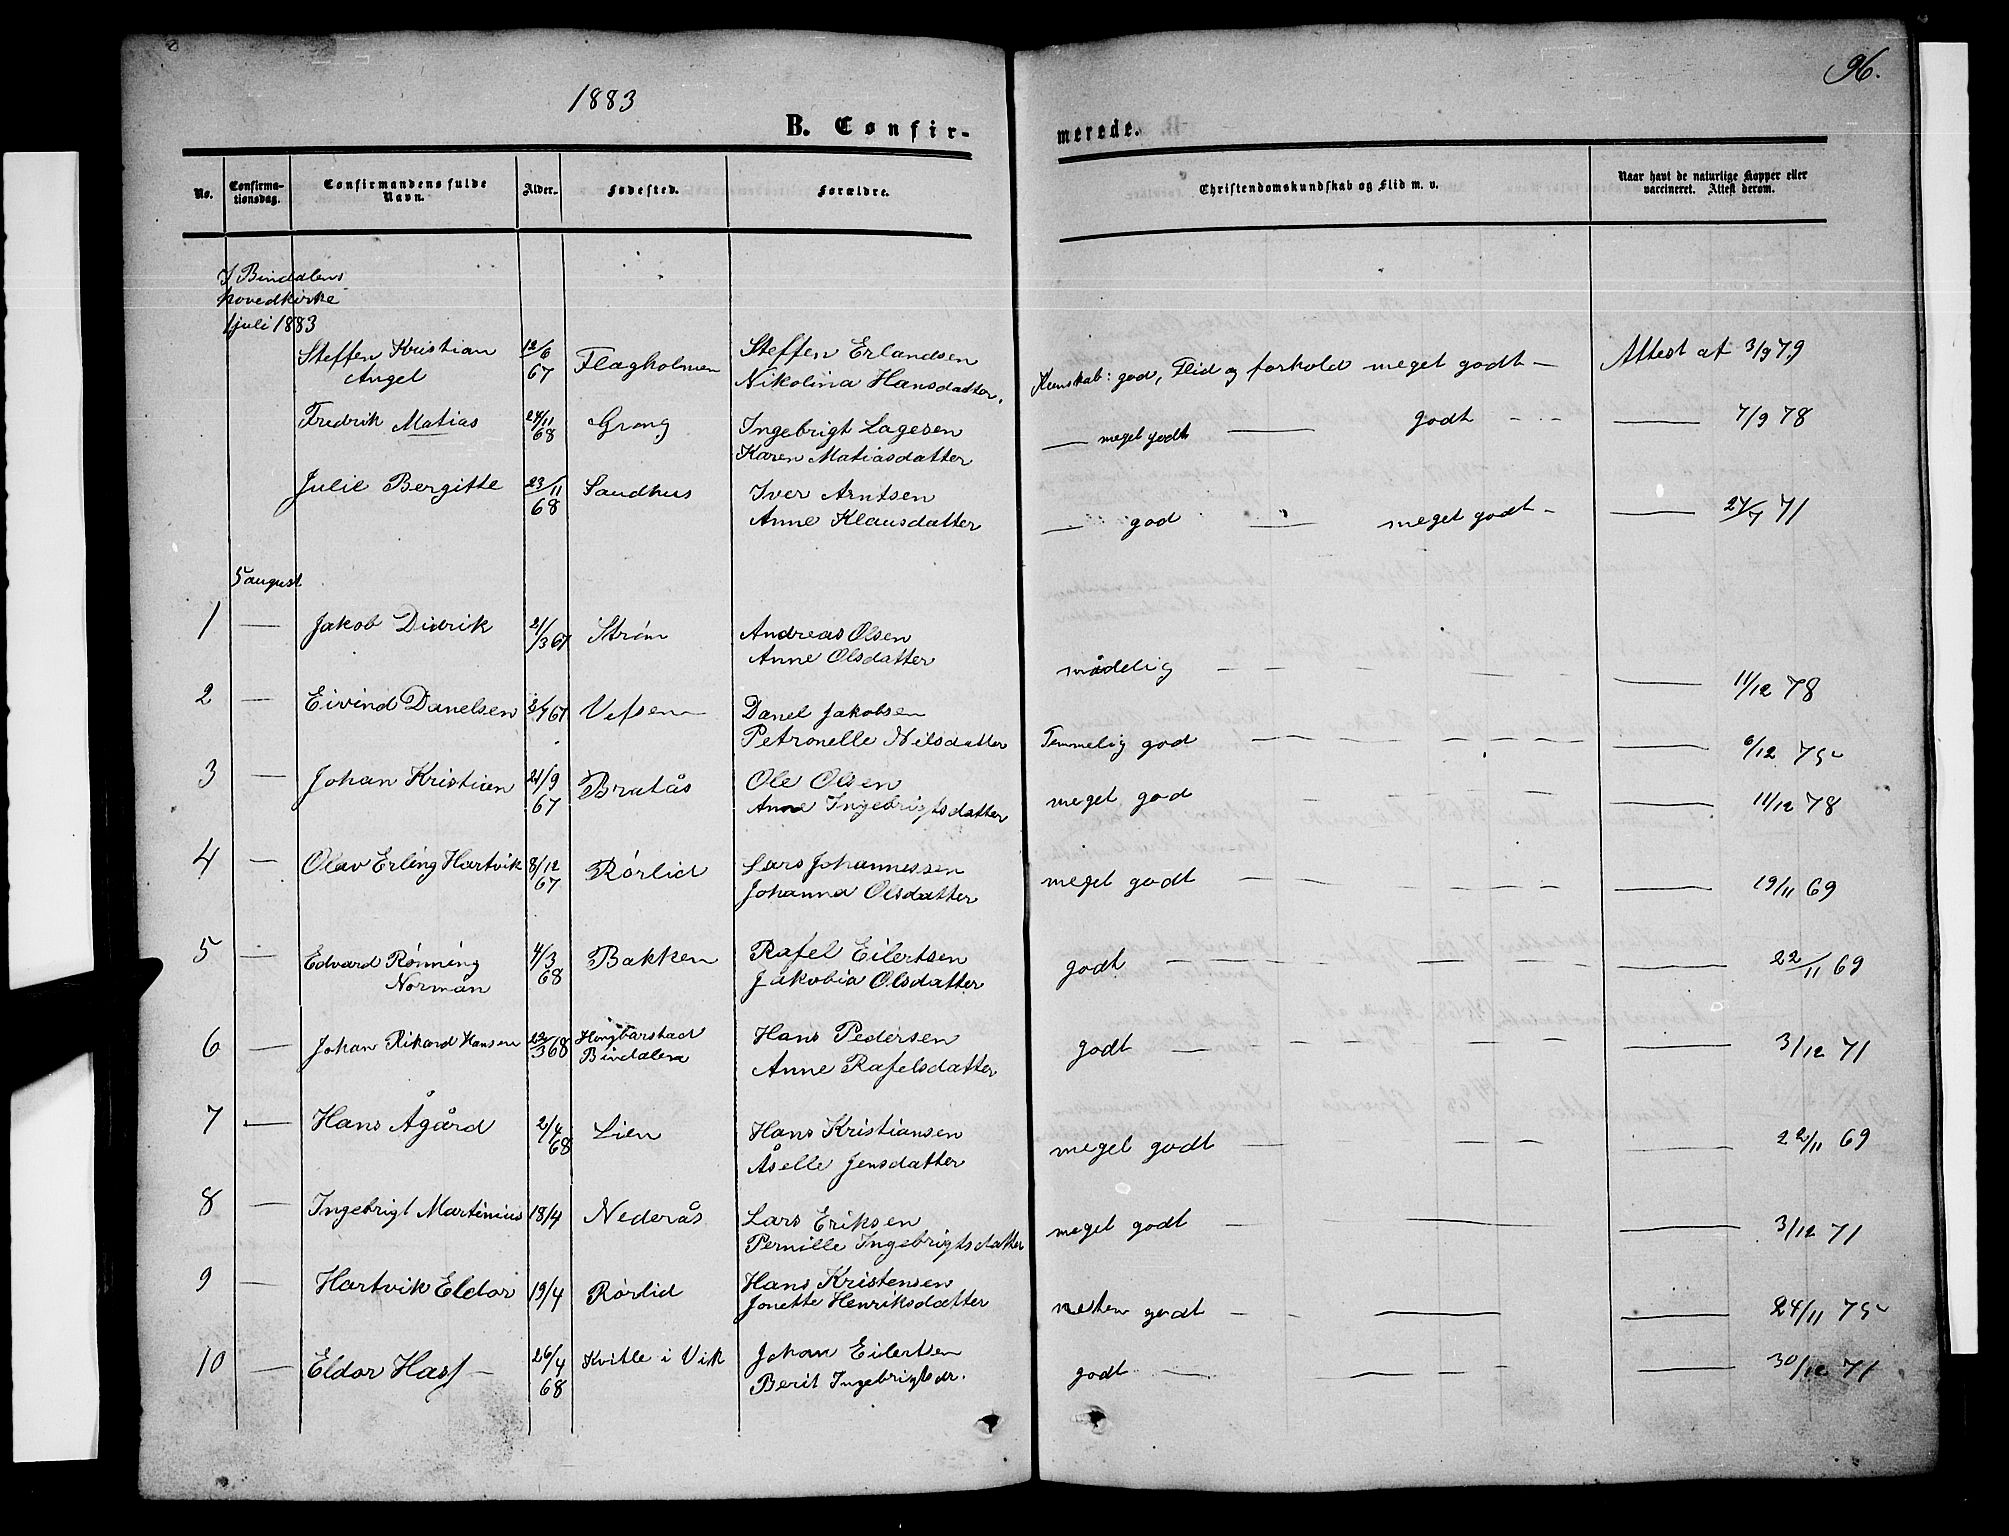 96.
1883
B. Confir-
merede.
No.
Confirma-
tionsdag.
Confirmandens fulde
Navn.
Alder.
Fødested.
Forældre.
Christendomskundskab og Flid m. v.
Naar havt de naturlige Kopper eller
vaccineret. Attest derom.
I Bindalens
hovedkirke
1 juli 1883
Steffen Kristian
Angel
12/6
67
Flagholmen
Steffen Erlandsen
Nikolina Hansdatter.
Kunskab: god, Flid og forhold meget godt —
Attest af 3/9 79
Fredrik Matias
24/11
68
Grong
Ingebrigt Lagesen
Karen Matiasdatter
— meget godt — godt - -
— 7/9 78
Julie Bergitte
23/11
68
Sandhus
Iver Arntsen
Anne Klausdatter
— god — meget godt —
— 27/7 71
5 august
1 —
Jakob Didrik
21/3 67
Strøm
Andreas Olsen
Anne Olsdatter
mådelig - - - - -
— 11/12 78
2 —
Eivind Danelsen
Vefsen
Danel Jakobsen
Petronelle Nilsdatter
Temmelig god - - - - - - - -
— 6/12 75
3 —
Johan Kristian
21/9
67
Bratås
Ole Olsen
Anne Ingebrigtsdatter
meget god - - - - - -
— 11/12 78
4 —
Olav Erling Hartvik
8/12
67
Rørlid
Lars Johannessen
Johanna Olsdatter
meget godt - - - - - -
— 19/11 69
5 —
Edvard Rønning
Norman
4/3
68
Bakken
Rafel Eilertsen
Jakobia Olsdatter
godt - - - - - - - -
— 22/11 69
6 —
Johan Rikard Hansen
22/3 68
Bindalen
Hans Pedersen
Anne Rafelsdatter
godt — - - - -
— 3/12 71
7 —
Hans Ågård
2/4
68
Lien
Hans Kristiansen
Åselle Jensdatter
meget godt - - - -
— 22/11 69
8 —
Ingebrigt Martinius
18/4
Nederås
Lars Eriksen
Pernille Ingebrigtsdatter
meget godt - - —
— 3/12 71
9 —
Hartvik Eldor
19/4
Rørlid
Hans Kristensen
Jonette Henriksdatter
nesten godt - - —
— 24/11 75
10 —
Eldor Hass —
26/4
68
Kvitle i Vik
Johan Eilertsen
Berit Ingebrigtsdr.
godt — — - -
— 30/12 71